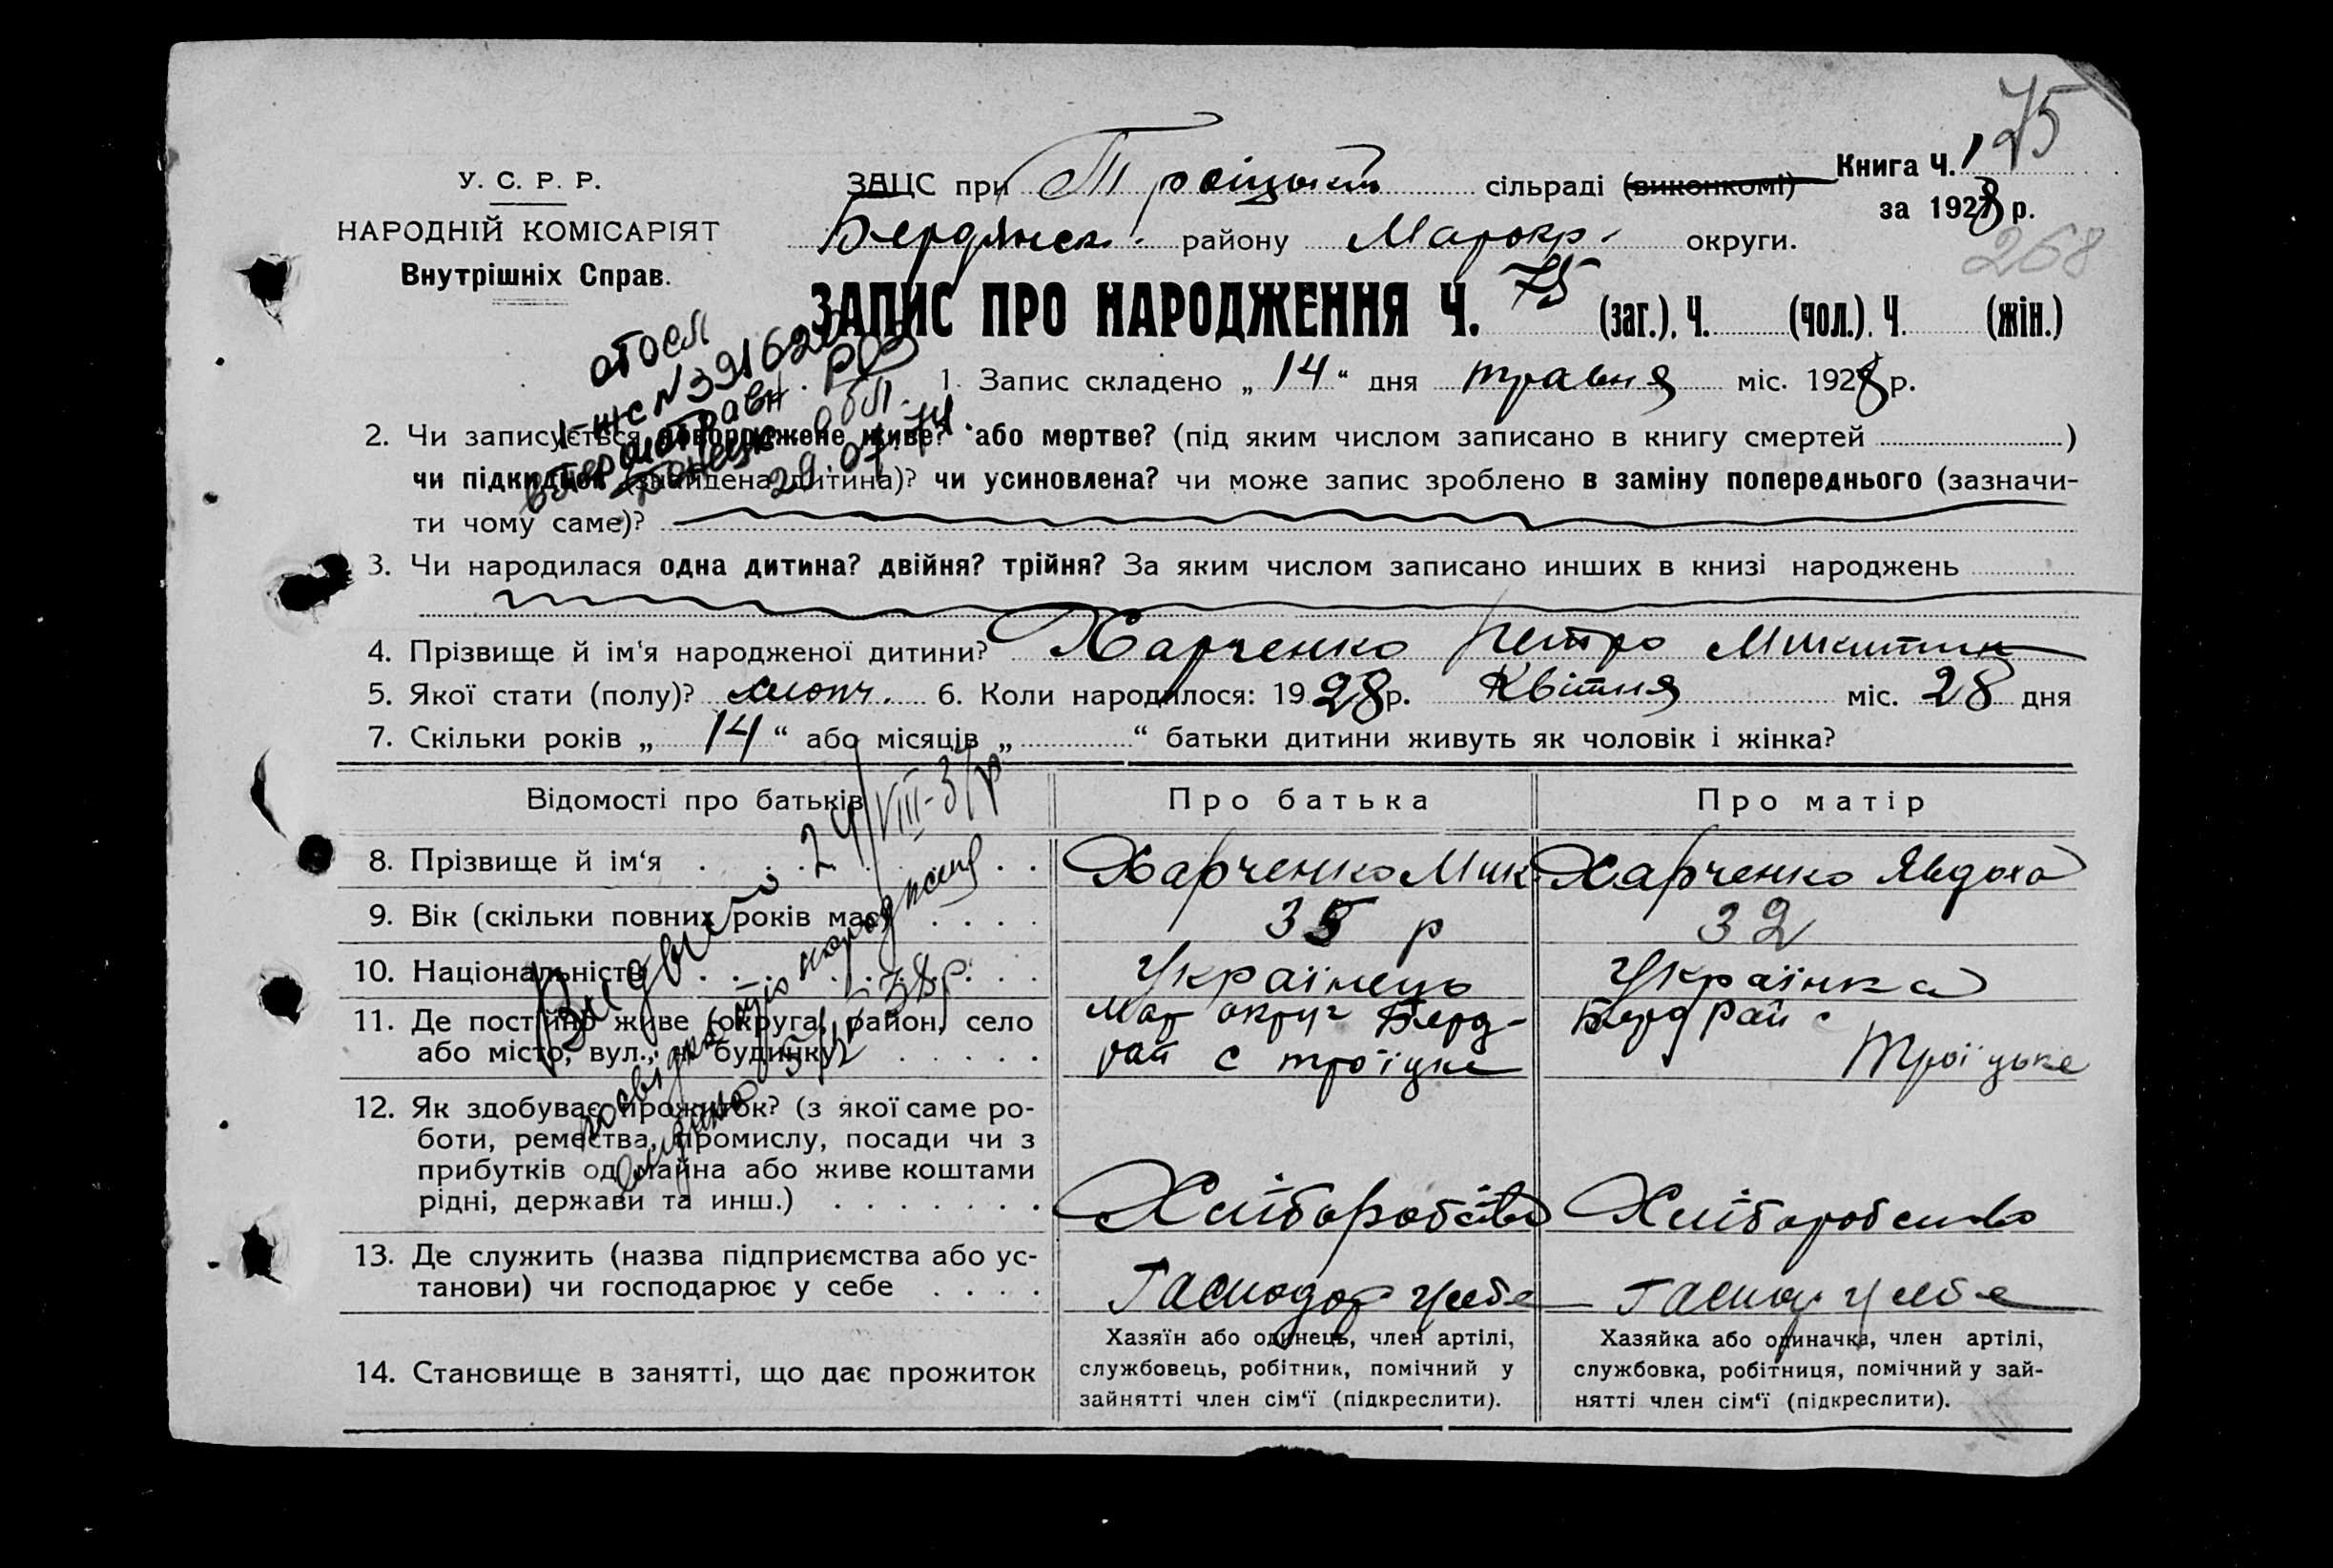 75
У. С. Р. Р.
НАРОДНІЙ КОМІСАРІЯТ
Внутрішніх Справ.
ЗАЦС при Троіцькій сільраді (виконкомі) Книга Ч. 1
за 1928 р.
Бердянськ. району Марокр. округи.
268
ЗАПИС ПРО НАРОДЖЕННЯ Ч. 75 (заг.), Ч. (чол.). Ч. (жін.)
1. Запис складено „ 14 “ дня травня міс. 1928 р.
29.07.74
2. Чи записується новороджене живе? або мертве? (під яким числом записано в книгу смертей )
чи підкидьок (знайдена дитина)? чи усиновлена? чи може запис зроблено в заміну попереднього (зазначи-
ти чому саме)?
3. Чи народилася одна дитина? двійня? трійня? За яким числом записано инших в книзі народжень
4. Прізвище й ім‘я народженої дитини? Харченко Петро Микитин
5. Якої стати (полу)? хлопч. 6. Коли народилося: 1928 р. Квітня міс. 28 дня
7. Скільки років „ 14 “ або місяців „ “ батьки дитини живуть як чоловік і жінка?
Відомості про батьків Про батька Про матір
8. Прізвище й ім‘я Харченко Мик Харченко Явдоха
9. Вік (скільки повних років має) 35 р 32
10. Національність Українець Українка
11. Де постійно живе (округа, район, село Мар округ Берд- Берд рай с
або місто, вул., № будинку) рай с троїцьке Троїцьке
12. Як здобуває прожиток? (з якої саме ро-
боти, ремества, промислу, посади чи з
прибутків од майна або живе коштами
рідні, держави та инш.) Хліборобство Хліборобство
13. Де служить (назва підприємства або ус-
танови) чи господарює у себе Господар у себе Господ у себе
14. Становище в занятті, що дає прожиток
Хазяїн або одинець, член артілі,
службовець, робітник, помічний у
зайнятті член сім‘ї (підкреслити).
Хазяйка або одиначка, член артілі,
службовка, робітниця, помічний у зай-
нятті член сім‘ї (підкреслити).